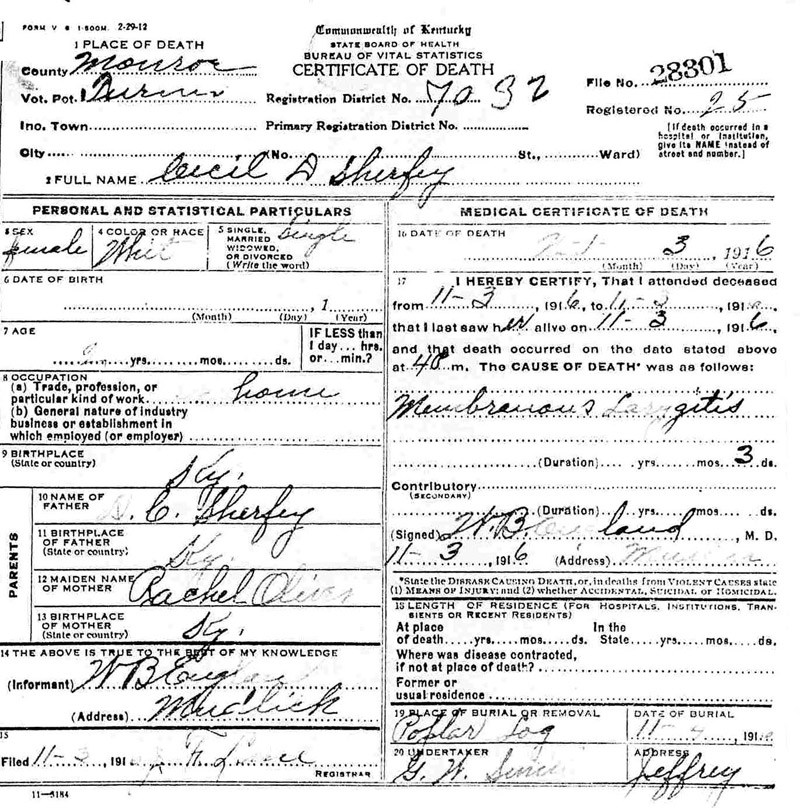 FORM V S 1-500M. 2-29-12
Commonwealth of Kentucky
STATE BOARD OF HEALTH
BUREAU OF VITAL STATISTICS
CERTIFICATE OF DEATH
1 PLACE OF DEATH
County Monroe
Vot. Pct.
Inc. Town
City (No. St., Ward)
Registration District No. 7032
Primary Registration District No.
File No. 28301
Registered No. 25
[If death occurred in a
hospital or institution,
give its NAME instead of
street and number.]
2 FULL NAME Cecil D Sherfey
PERSONAL AND STATISTICAL PARTICULARS
3 SEX
female
4 COLOR OR RACE
Whit
5 SINGLE,
MARRIED
WIDOWED,
OR DIVORCED
(Write the word)
Single
6 DATE OF BIRTH
, 1
(Month) (Day) (Year)
7 AGE
yrs. mos. ds.
IF LESS than
1 day... hrs.
or... min.?
8 OCCUPATION
(a) Trade, profession, or
particular kind of work home
(b) General nature of industry
business or establishment in
which employed (or employer)
9 BIRTHPLACE
(State or country)
Ky.
PARENTS
10 NAME OF
FATHER
C. Sherfey
11 BIRTHPLACE
OF FATHER
(State or country)
Ky.
12 MAIDEN NAME
OF MOTHER
Rachel Oliver
13 BIRTHPLACE
OF MOTHER
(State or country)
Ky.
14 THE ABOVE IS TRUE TO THE BEST OF MY KNOWLEDGE
(Informant) W B England
(Address) Mudlick
15
Filed 11-3, 191
REGISTRAR
11-5184
MEDICAL CERTIFICATE OF DEATH
16 DATE OF DEATH
3, 1916
(Month) (Day) (Year)
17 I HEREBY CERTIFY, That I attended deceased
from 11-3, 1916, to 11-3, 191
that I last saw her alive on 11-3, 1916,
and that death occurred on the date stated above
at m. The CAUSE OF DEATH* was as follows:
Membranous Laryngitis
(Duration) yrs. mos. 3 ds.
Contributory
(SECONDARY)
(Duration) yrs. mos. ds.
(Signed) W. B. England, M. D.
11-3, 1916 (Address)
*State the DISEASE CAUSING DEATH, or, in deaths from VIOLENT CAUSES state
(1) MEANS OF INJURY; and (2) whether ACCIDENTAL, SUICIDAL or HOMICIDAL.
18 LENGTH OF RESIDENCE (FOR HOSPITALS, INSTITUTIONS, TRAN-
SIENTS OR RECENT RESIDENTS)
At place In the
of death....yrs....mos....ds. State....yrs....mos....ds.
Where was disease contracted,
if not at place of death?
Former or
usual residence
19 PLACE OF BURIAL OR REMOVAL
Poplar Log
DATE OF BURIAL
11-, 191
20 UNDERTAKER
G. W.
ADDRESS
Jeffrey